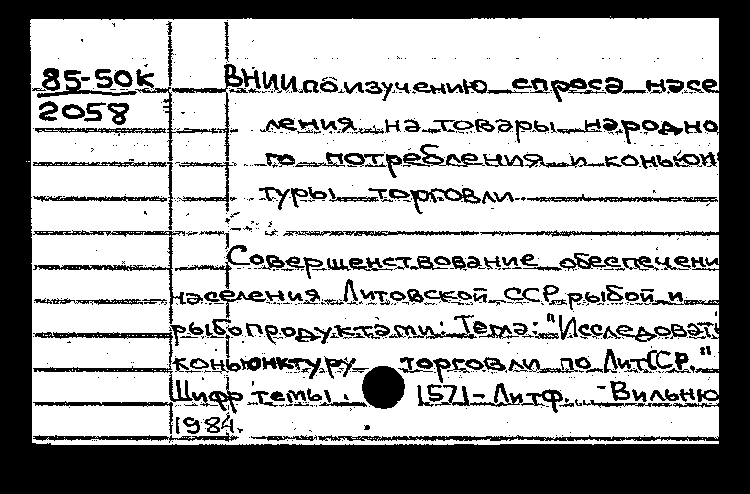 85-50К ВНИИ по изучению спроса насе
2058 ления на товары народно
го потребления и конъюн
туры торговли
Совершенствование обеспечени
населения Литовской ССР рыбой и
рыбопродуктами: Тема: "Исследоват
конъюнктуру торговли по ЛитССР."
Шифр темы. 1571-Литф. -Вильню
1984.